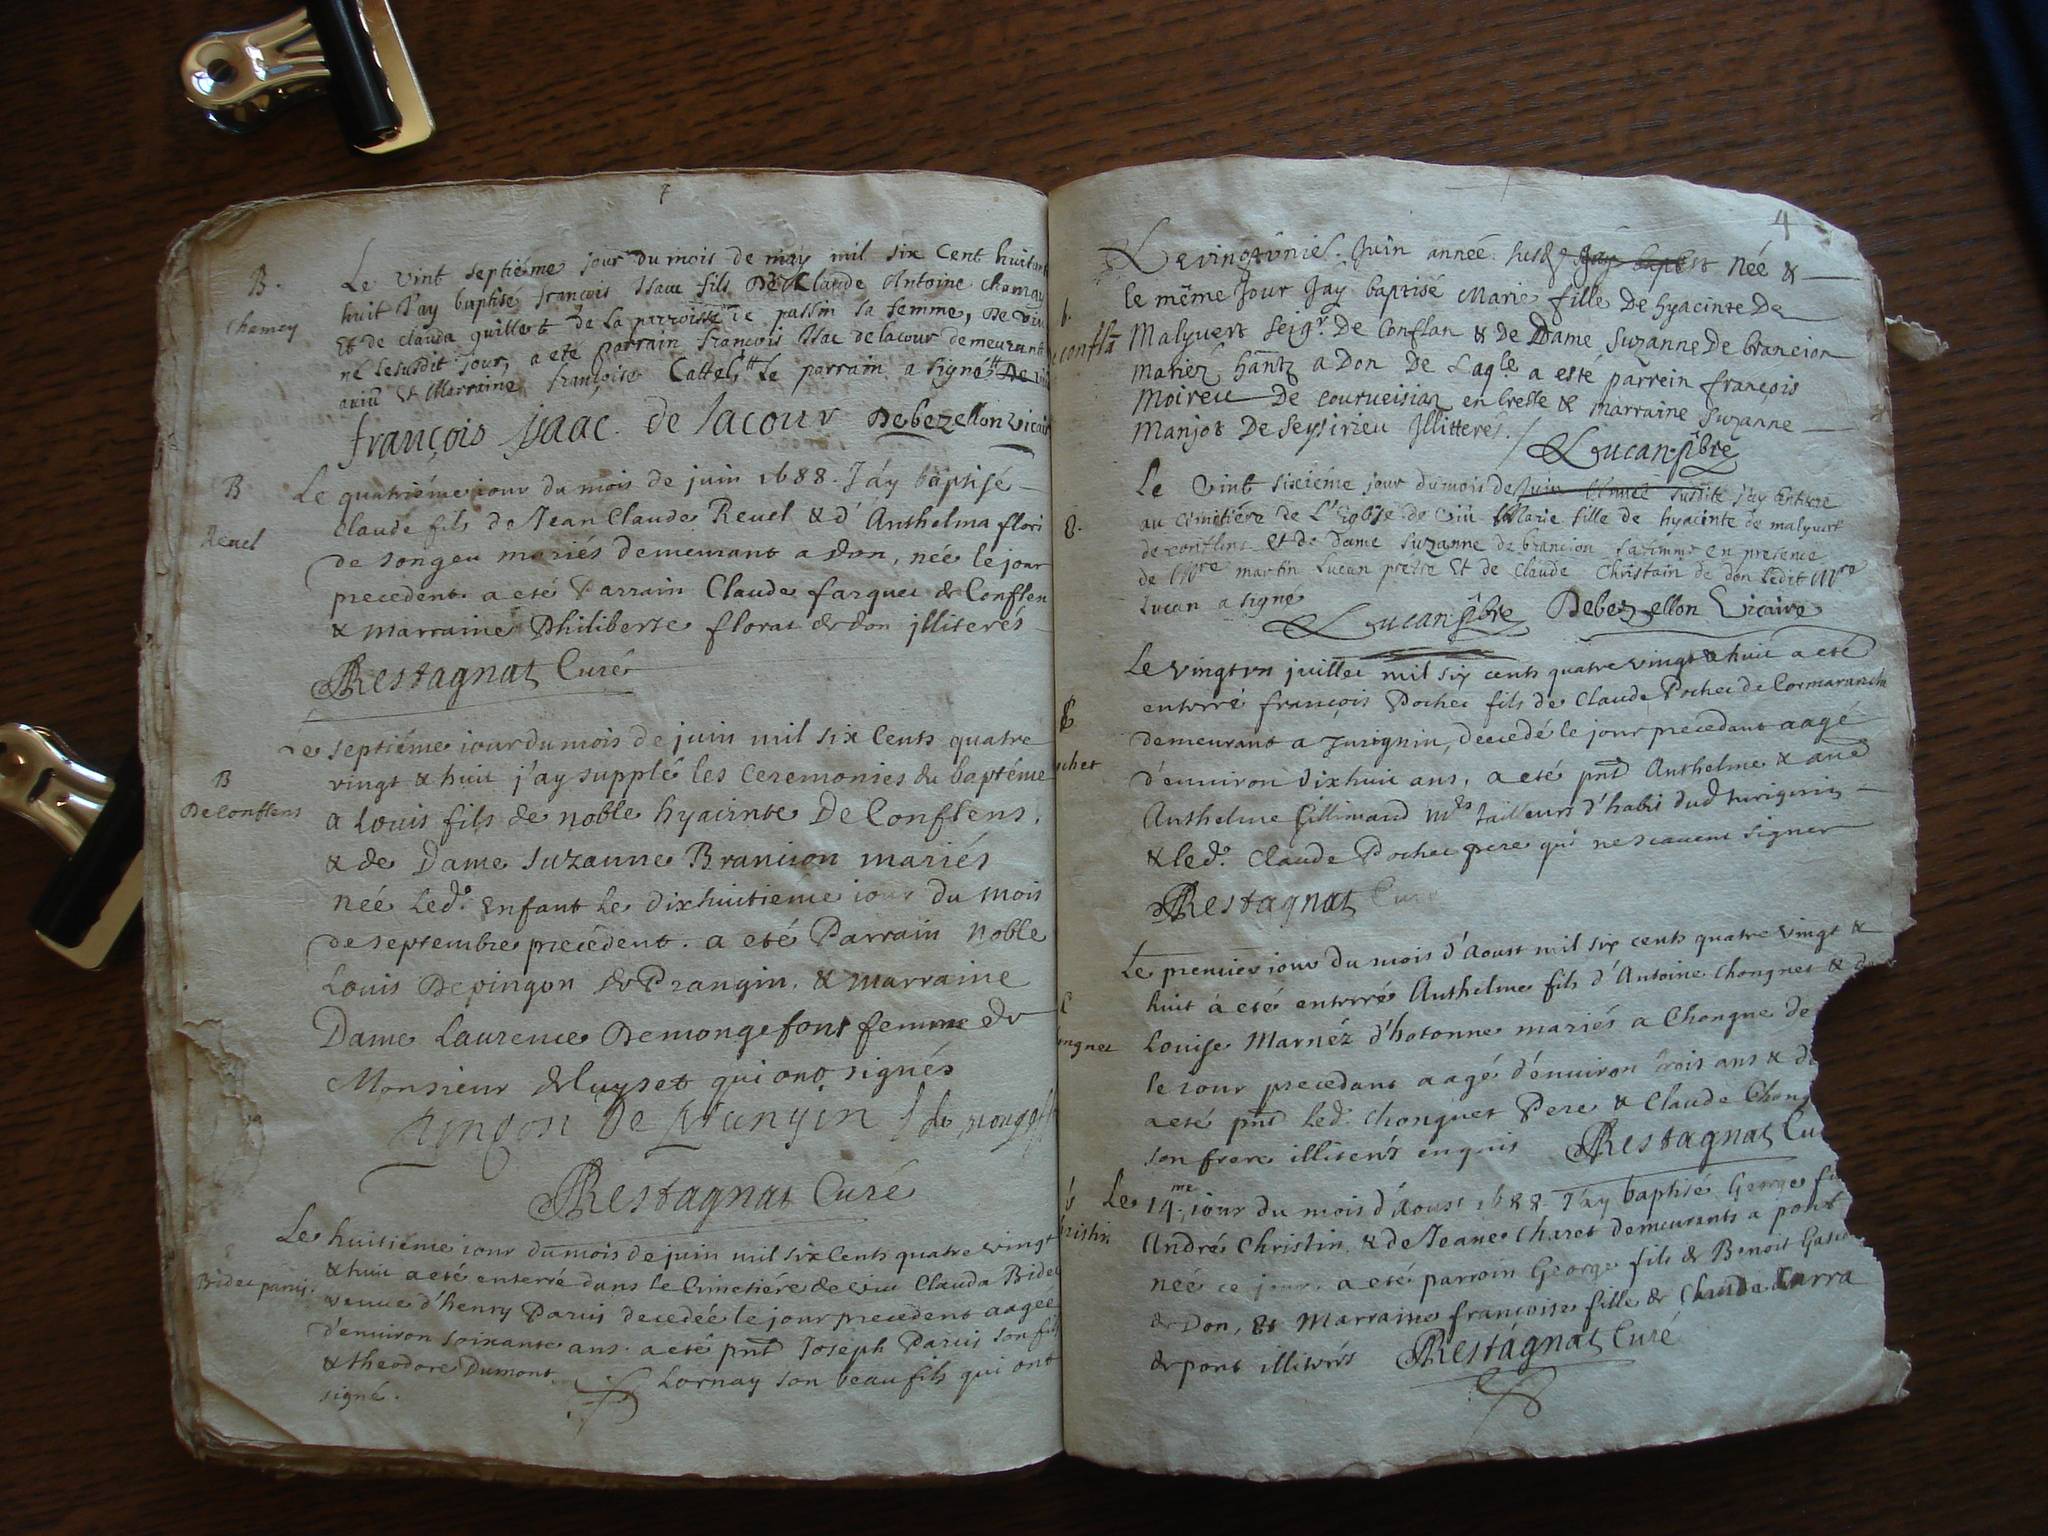 B.
Chamey
Le vint septiéme jour du mois de may mil six cent huitan
huit J'ay baptisé françois Isaac fils De Claude Antoine chamay
Et de clauda guillert de la parroisse de passin sa femme, De viu
né le susdit jour, a eté parrain françois Isac de lacour demeurant
auiu Et Marraine françoise Cattel, Le parrain a signé
françois isaac de lacour Debezellon vicair
B
Reuel
Le quatriéme iour du mois de juin 1688. J'áy baptisé
Claude fils de Jean Claude Reuel & d'Anthelma flori
de songeu mariés demeurant a don, née le jour
precedent. a eté Parrain Claude farquet de Conflen
& marraine Philiberte florat de don jlliterés
Restagnat Curé
B
De Conflens
Le septiéme iour du mois de juin mil six Cents quatre
vingt & huit j'ay supplé les Ceremonies du baptéme
a Louis fils de noble hyacinte De Conflens,
& de Dame Suzanne Brancion mariés
née Led.º enfant le dixhuitieme iour du mois
de septembre precédent. a eté Parrain Noble
Louis Depingon de Prangin, & Marraine
Dame Laurence Demongefont femme de
Monsieur de Luyset qui ont signés
pingon De prangin
Restagnat Curé
Bidet paruis.
Le huitiéme iour du mois de juin mil six Cents quatre vingt
& huit a eté enterré dans le Cimetiére de viu Clauda Bidet
veuue d'henry Paruis decedée le jour precedent aagée
d'enuiron soixante ans. a eté pnt Joseph Paruis son fils
& theodore Dumont Lornay son beau fils qui ont
signé.
4
b.
conflã
Le vingtvniéㆍ Juin année susd Jay baptisé Née &
le même Jour Jay baptisé Marie fille De hyacinte De
Malyuert Seigr. De Conflan & de Dame Suzanne De brancion
Mariéz hãntz a Don De Lagle a esté parrein françois
Moireu De courueisiaz en bresse & marraine Suzanne
Manjot De Seysirieu Jllitterés.
Lucan pbre
Le Vint sixiéme jour du mois de Juin l'année susdite j'ay Enterré
au cimetiére de L'Eglise de Viú Marie fille de hyacinte de malyuert
de conflens et de Dame Suzanne de brancion sa femme en presence
de Mre martin Lucan prestre Et de Claude Christain de don ledit Mre
Lucan a signé
Lucan pbre Debezellon Vicaire
E
ochet
Le vingt vn juillet mil six cents quatre vingt & huit a eté
enterré françois Pochet fils de Claude Pochet de Cormaranche
demeurant a Jurignin, decedé le jour precedant aagé
d'enuiron dixhuit ans, a eté pnt Anthelme & aue
Anthelme Gillimand Mrs tailleurs d'habis dud Jurignin
& led.º Claude Pochet pere qui ne scauent signer
Restagnat Curé
E
ongnet
Le premier iour du mois d'Aoust mil six cents quatre vingt &
huit á eté enterré Anthelme fils d'Antoine Chongnet & de
Louise Marnéz d'hotonne mariés a Chongne de
le iour precedant aagé d'enuiron trois ans & d
a eté pnt led. Chongnet Pere & Claude Chong
son frere illiterés enquis Restagnat Cu
ristin
Le 14.me iour du mois d'Aoust 1688. J'ay baptisé George fi
André Christin, & de Jeane Charet demeurants a pont
née ce jour. a eté parroin George fils de Benoit Gas
de Don, Et Marraine françoise fille de Claude Carra
de pont illiterés Restagnat Curé